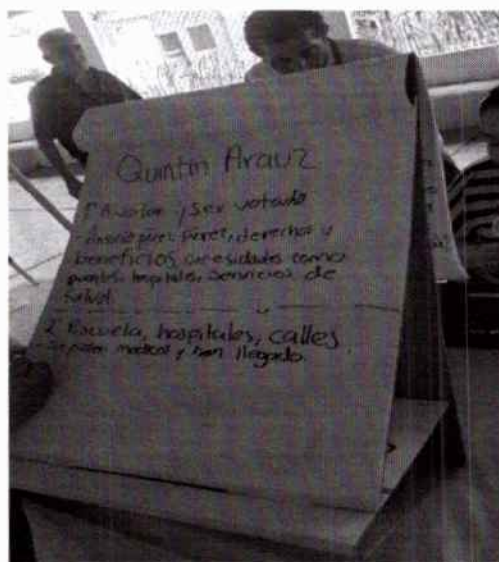 Quintín Arauz
1 A votar y ser votado
- derechos y
beneficios, necesidades como
puentes, hospitales, servicios de
salud.
2 Escuela, hospitales, calles,
- Se piden medicos y han llegado.